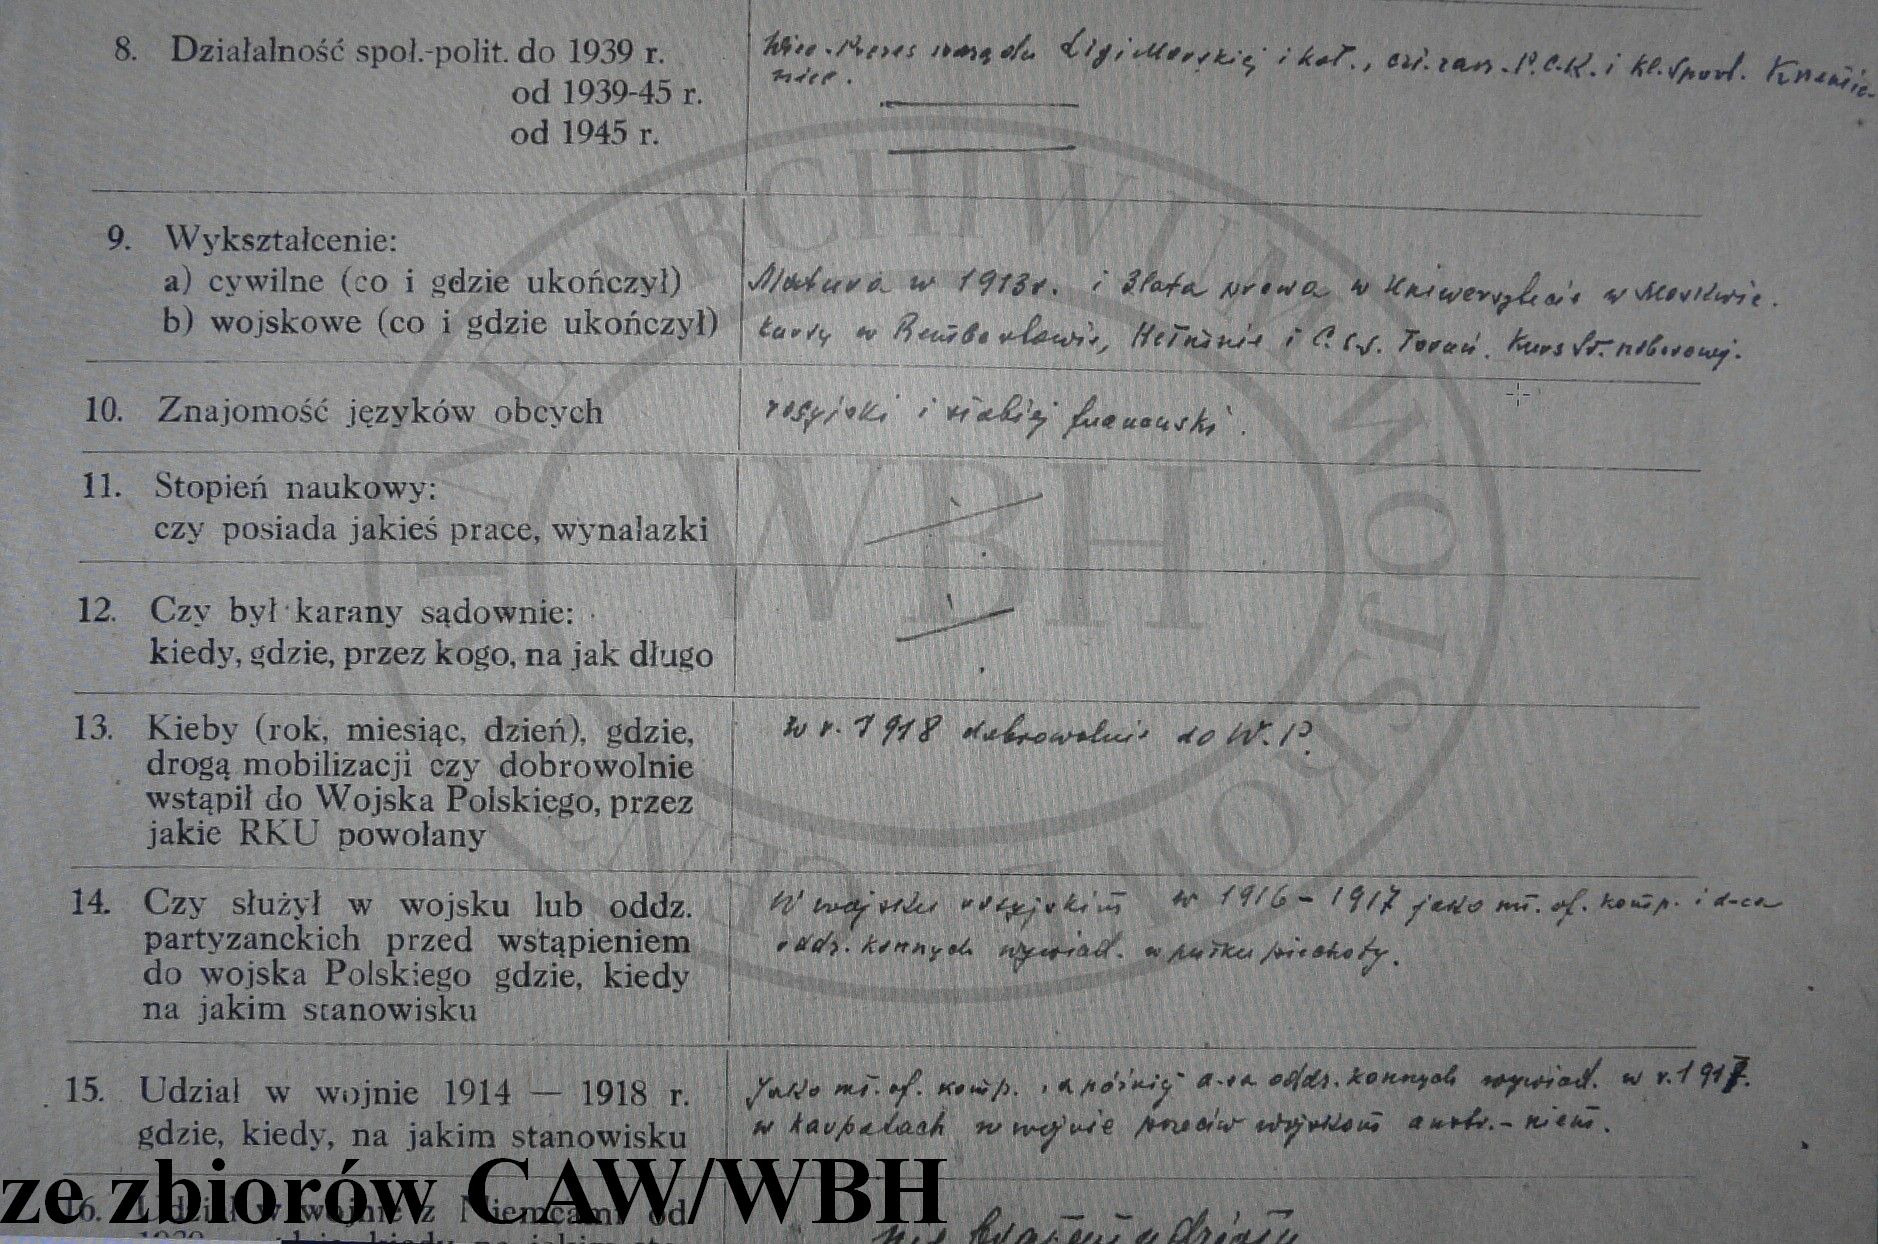 8. Działalność społ.-polit. do 1939 r. Wice-Prezes zarządu Ligi Morskiej i kol., czł. zarz. P.C.K. i kl. Sport. Krzemie-
od 1939-45 r. niec.
od 1945 r.
9. Wykształcenie:
a) cywilne (co i gdzie ukończył) Matura w 1913r. i 3 lata prawa w Uniwersytecie w Moskwie.
b) wojskowe (co i gdzie ukończył) kursy w Rembertowie, Chełmnie i C.S.S. Toruń. Kurs
10. Znajomość języków obcych rosyjski i słabiej francuski.
11. Stopień naukowy:
czy posiada jakieś prace, wynalazki
12. Czy był karany sądownie:
kiedy, gdzie, przez kogo, na jak długo
13. Kieby (rok, miesiąc, dzień), gdzie, w r. 1918 dobrowolnie do W.P.
drogą mobilizacji czy dobrowolnie
wstąpił do Wojska Polskiego, przez
jakie RKU powołany
14. Czy służył w wojsku lub oddz. W wojsku rosyjskim w 1916-1917 jako mł. of. komp. i d-ca
partyzanckich przed wstąpieniem oddz. konnych wywiad. w pułku piechoty.
do wojska Polskiego gdzie, kiedy
na jakim stanowisku
15. Udział w wojnie 1914 — 1918 r. Jako mł. of. komp., a później d-ca oddz. konnych wywiad. w r. 1917.
gdzie, kiedy, na jakim stanowisku w Karpatach w wojnie przeciw wojskom austr.-niem.
16. Udział w wojnie z Niemcami od nie brałem udziału
ze zbiorów CAW/WBH
CENTRALNE ARCHIWUM WOJSKOWE
WBH